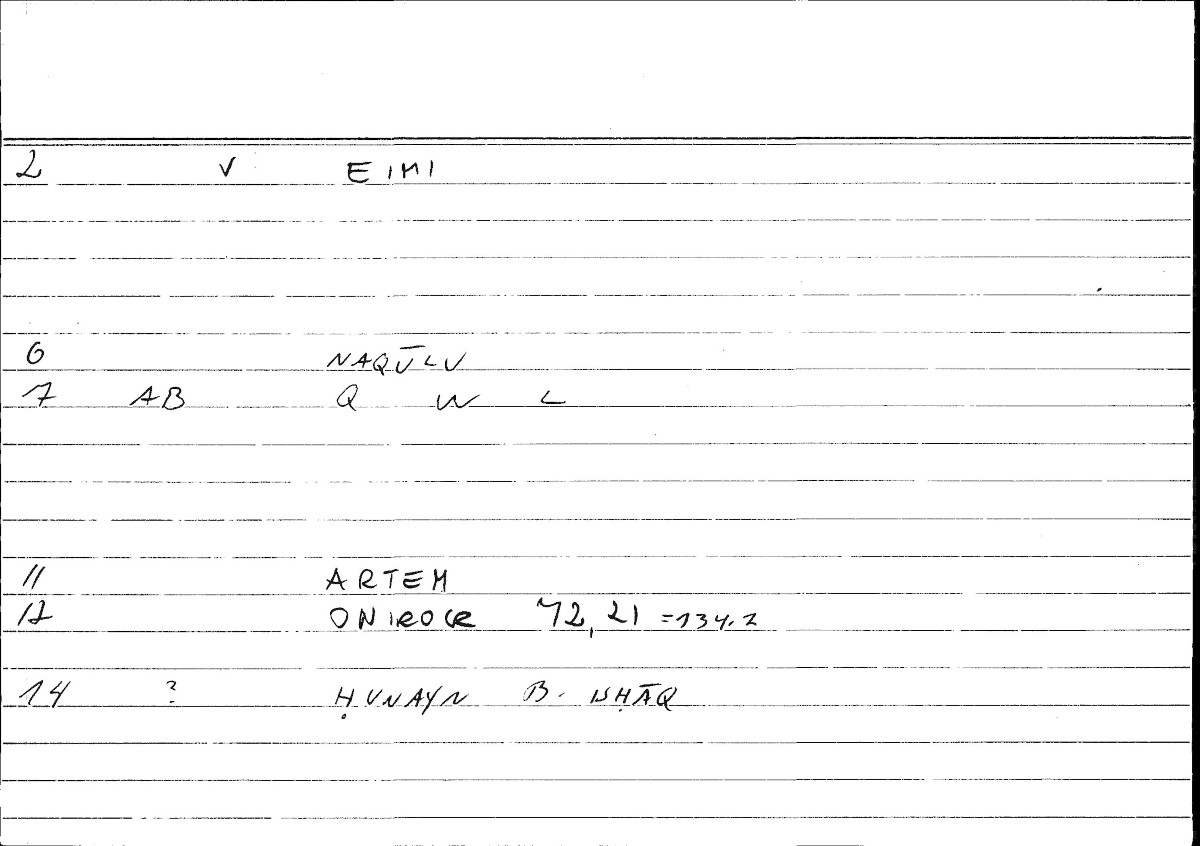 2 V EIMI
6 NAQŪLU
7 AB Q W L
11 ARTEM
12 ONIROCR 72,21 =134.2
14 ? ḤUNAYN B. ISḤĀQ